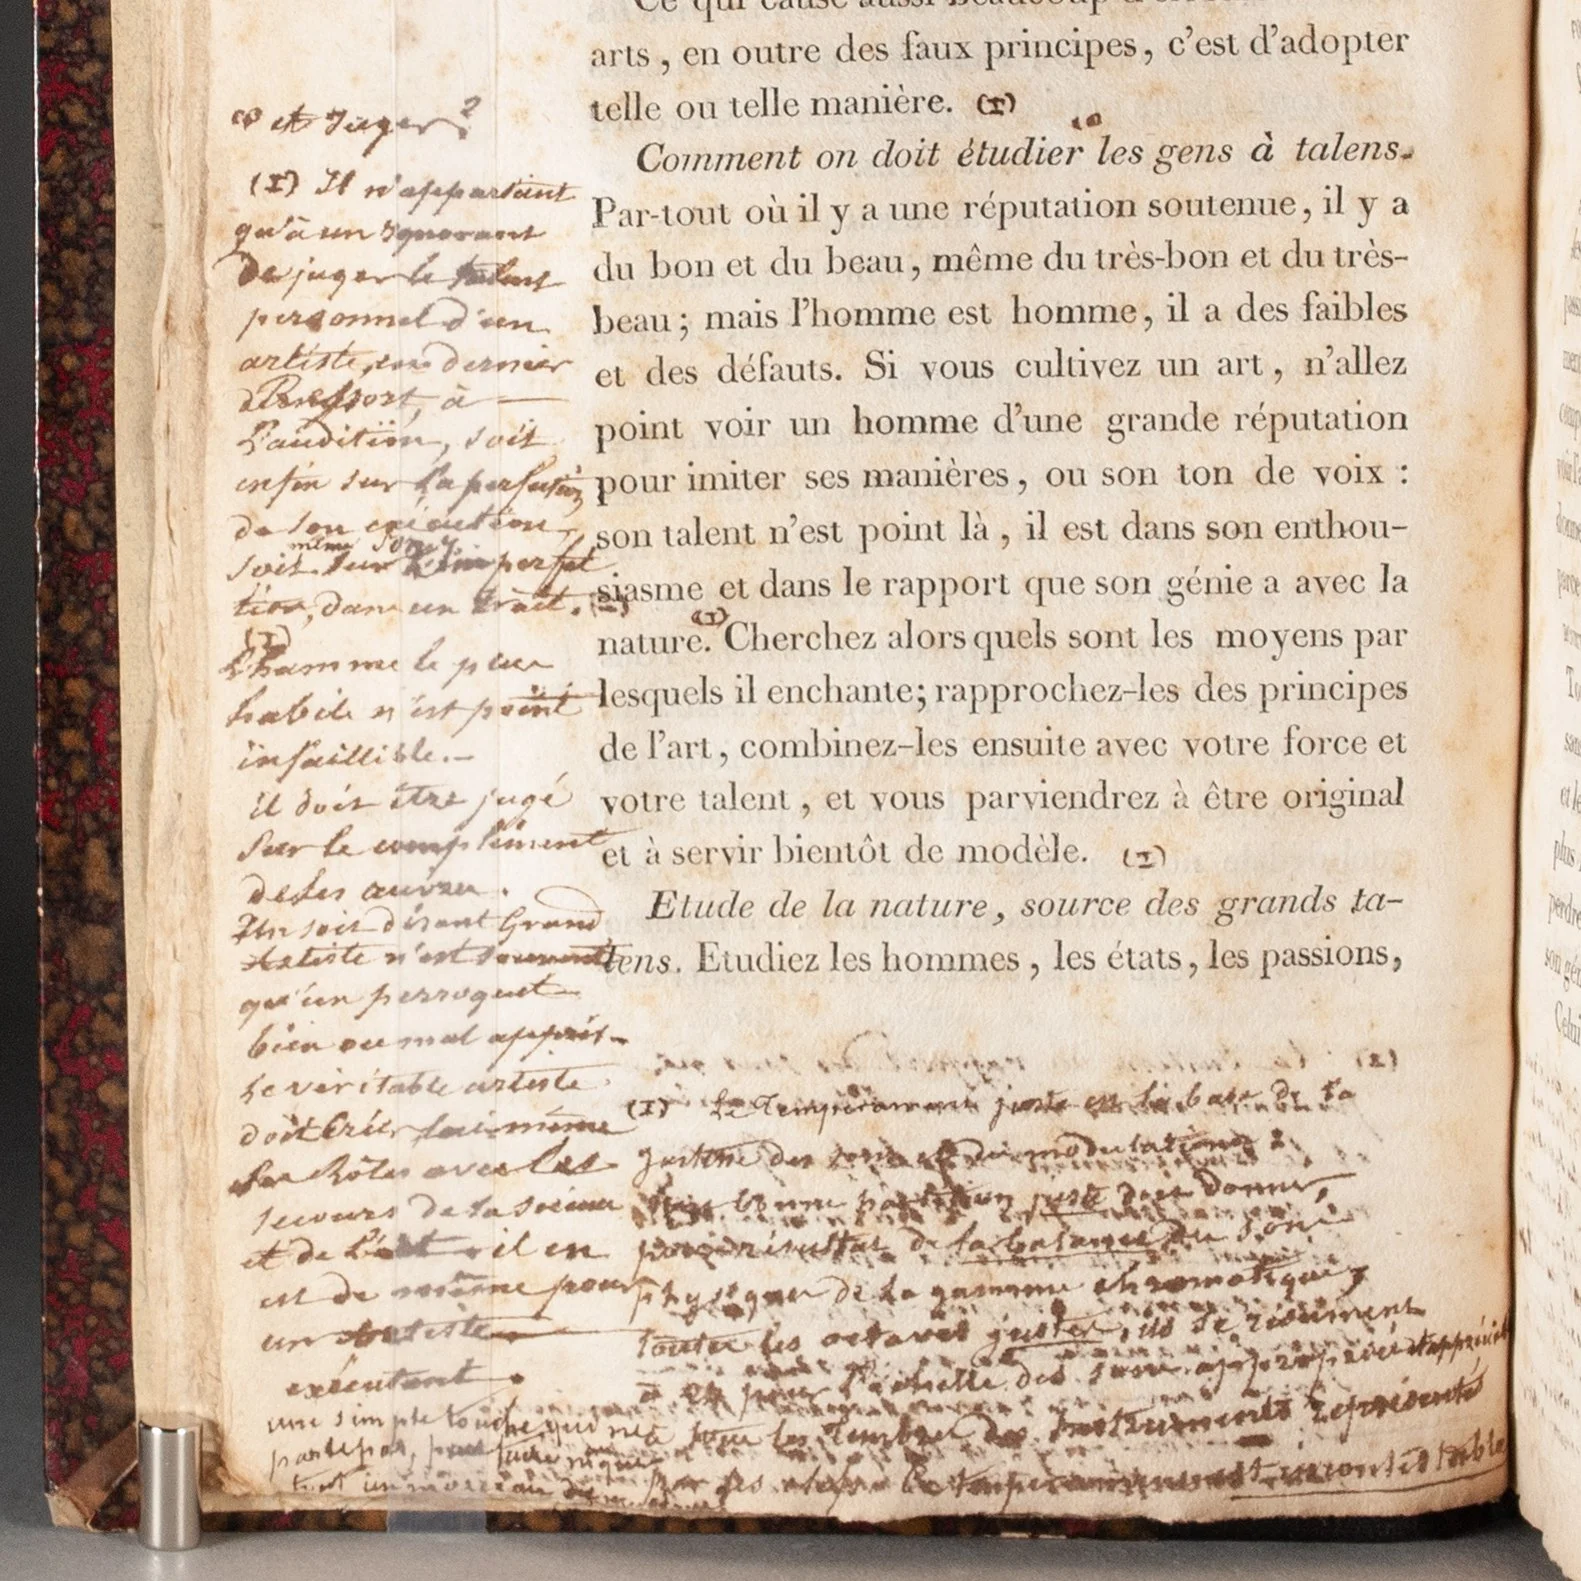 arts, en outre des faux principes, c'est d'adopter
telle ou telle manière. (1)
Comment on doit étudier les gens à talens.
Par-tout où il y a une réputation soutenue, il y a
du bon et du beau, même du très-bon et du très-
beau; mais l'homme est homme, il a des faibles
et des défauts. Si vous cultivez un art, n'allez
point voir un homme d'une grande réputation
pour imiter ses manières, ou son ton de voix :
son talent n'est point là, il est dans son enthou-
siasme et dans le rapport que son génie a avec la
nature. (1) Cherchez alors quels sont les moyens par
lesquels il enchante; rapprochez-les des principes
de l'art, combinez-les ensuite avec votre force et
votre talent, et vous parviendrez à être original
et à servir bientôt de modèle. (1)
Etude de la nature, source des grands ta-
lens. Etudiez les hommes, les états, les passions,
et Juger?
(1) Il n'appartient
qu'à un Ignorant
de juger le talent
personnel d'un
artiste, en dernier
Ressort, à
L'audition, soit
enfin sur la perfection
de son exécution,
même
soit sur L'imperfec
tion, dans un trait.
(1)
L'homme le plus
habile n'est point
infaillible.-
il doit être jugé
Sur le complément
de ses œuvres.
Un soit disant Grand
Artiste n'est souvent
qu'un perroquet
bien ou mal appris-
Le véritable artiste
doit créer lui-même
Ses Rôles avec les
secours de la science
et de L'art - il en
est de même pour
un Artiste
exécutant.
une simple touche qui ne
parle pas,
tout un morceau
(1) Le Tempérament juste est la base de la
justesse des sons et des modulations :
bonne partition juste doit donner,
résultat de la balance du son
physique de la gamme chromatique,
toutes les octaves justes,
pour l'échelle des sons
les Timbres des Instruments Représentés
par les Le tempérament incontestable